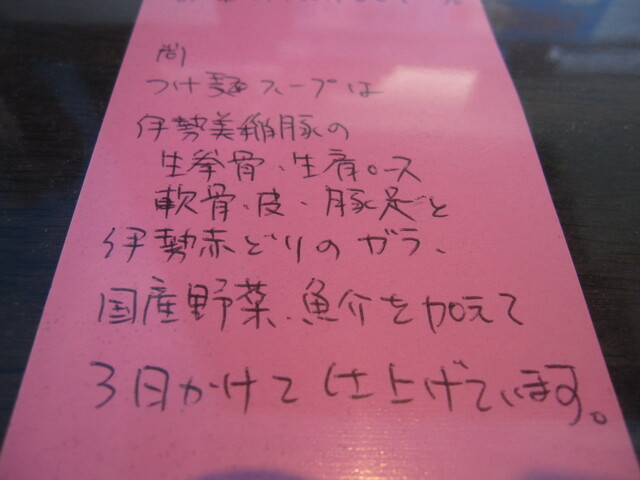 尚
つけ麺スープは
伊勢美稲豚の
生拳骨、生肩ロース
軟骨、皮、豚足と
伊勢赤どりのガラ、
国産野菜、魚介を加えて
3日かけて仕上げています。